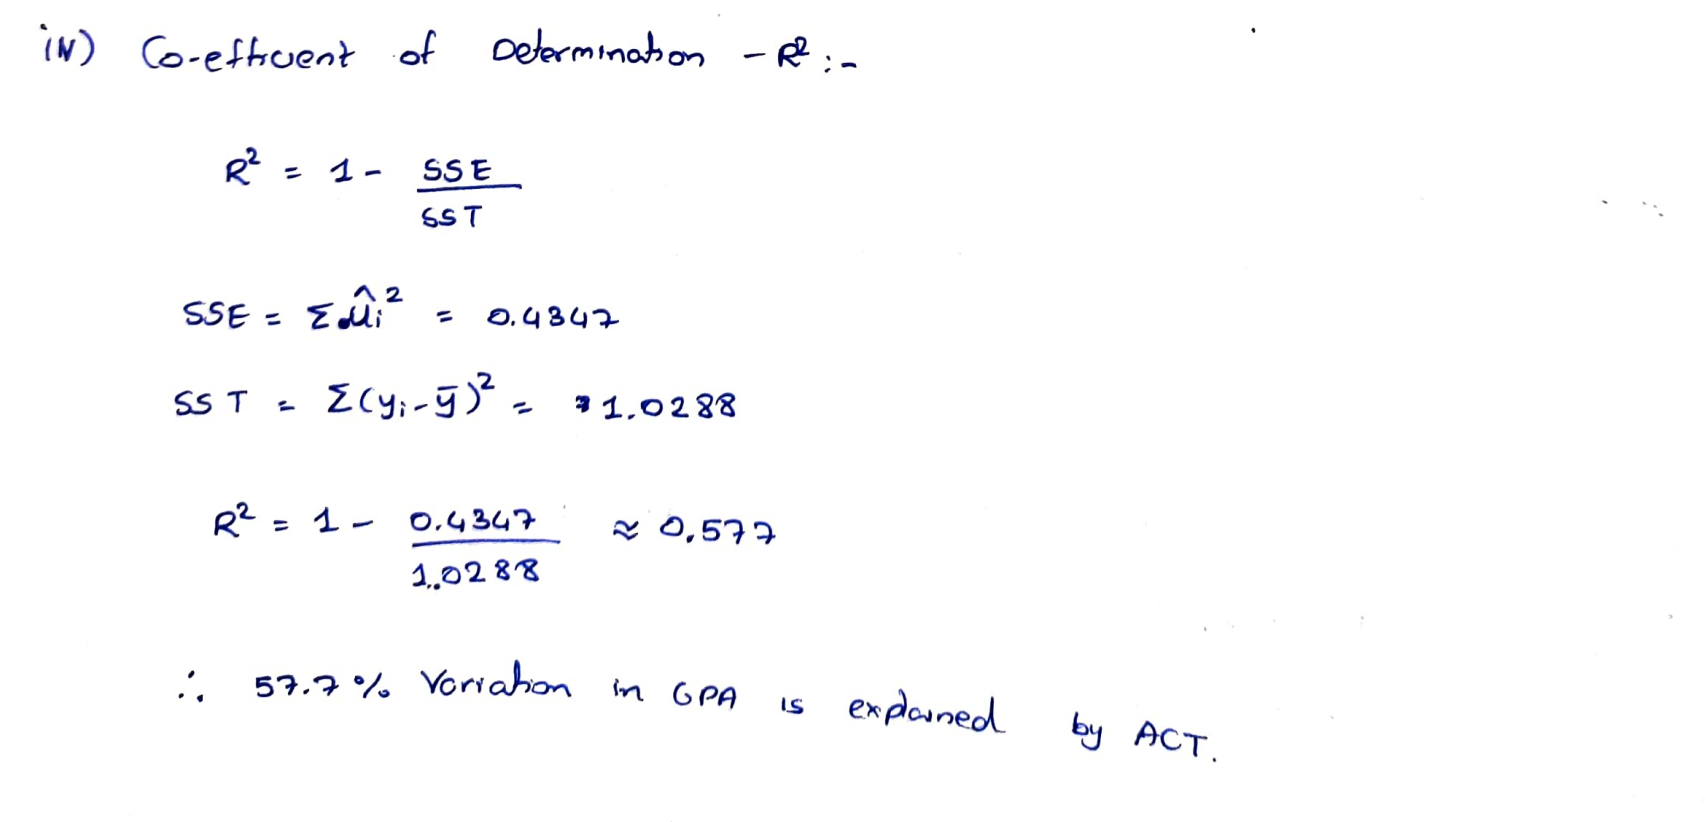 iv) Co-efficient of Determination - R² :-
R² = 1 - SSE / SST
SSE = Σ û_i² = 0.4347
SST = Σ(y_i - ȳ)² = 1.0288
R² = 1 - 0.4347 / 1.0288 ≈ 0.577
∴ 57.7% Variation in GPA is explained by ACT.